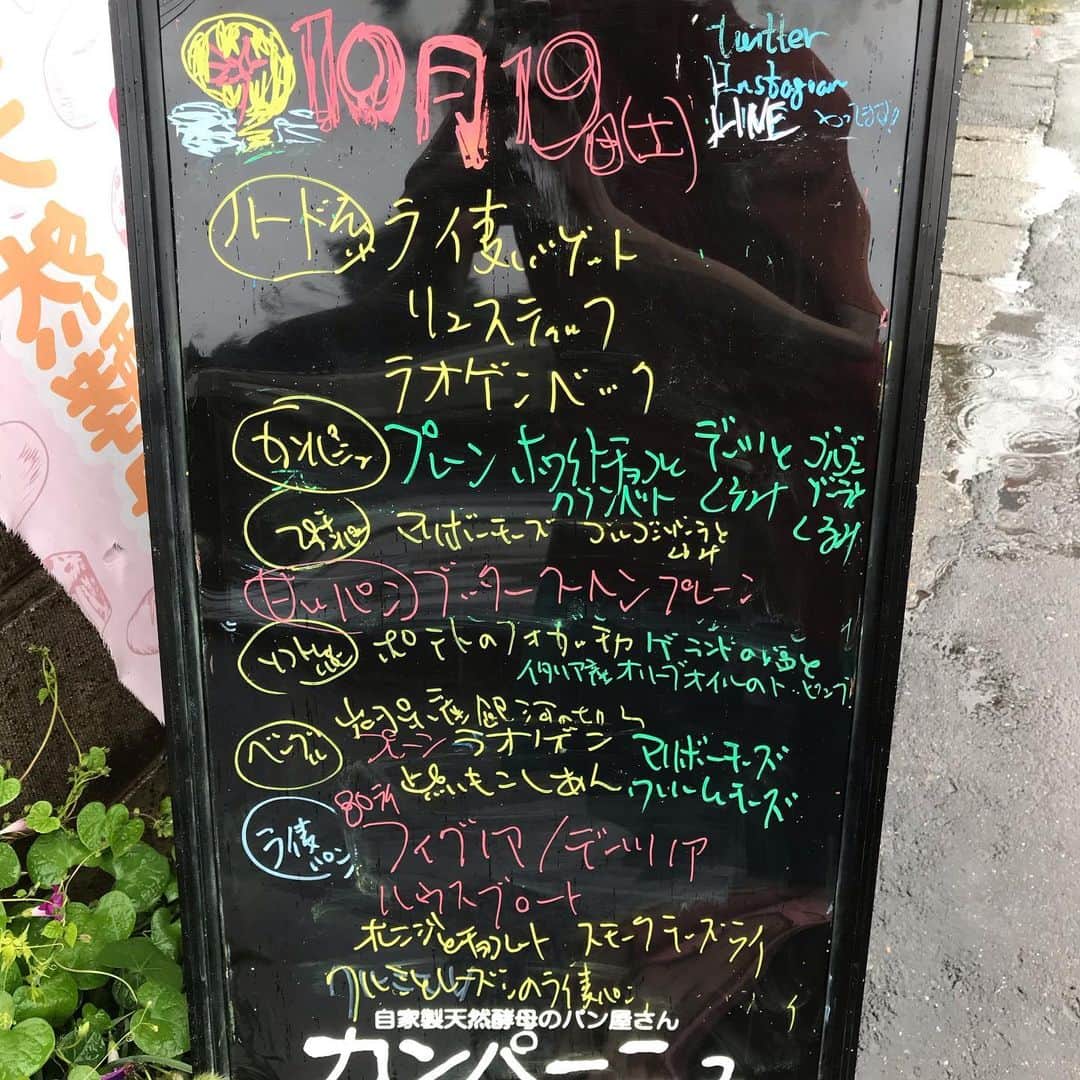 10月19日(土)
twitter
Instagram
LINE やってます!!
ハード系 ライ麦バゲット
リュスティック
ラオゲンベック
カンパーニュ プレーン ホワイトチョコと
クランベリー
デーツと
くるみ
ゴルゴン
ゾーラと
くるみ
マリボーチーズ ゴルゴンゾーラと
くるみ
甘いパン バター プレーン
ソフト ポテトのフォカッチャ ゲランドの塩と
イタリア産オリーブオイルの
ベーグル プレーン ラオゲン マリボーチーズ
こしあん クリームチーズ
ライ麦パン 80%
フィグノア/デーツノア
ハウスブロート
オレンジとチョコレート スモークチーズライ
クルミとレーズンのライ麦パン
自家製天然酵母のパン屋さん
カンパーニュ